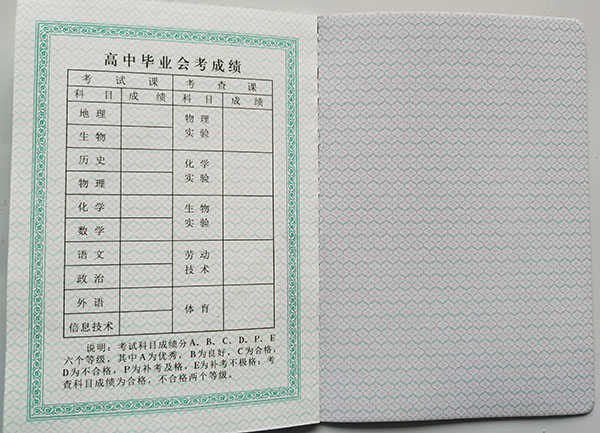 高中毕业会考成绩
考 试 课 考 查 课
科 目 成 绩 科 目 成 绩
地 理
物 理
实 验
生 物
历 史
化 学
实 验
物 理
化 学
生 物
实 验
数 学
语 文
劳 动
技 术
政 治
外 语
体 育
信息技术
说明：考试科目成绩分A、B、C、D、P、E
六个等级，其中A为优秀，B为良好，C为合格，
D为不合格，P为补考及格，E为补考不极格；考
查科目成绩为合格，不合格两个等级。